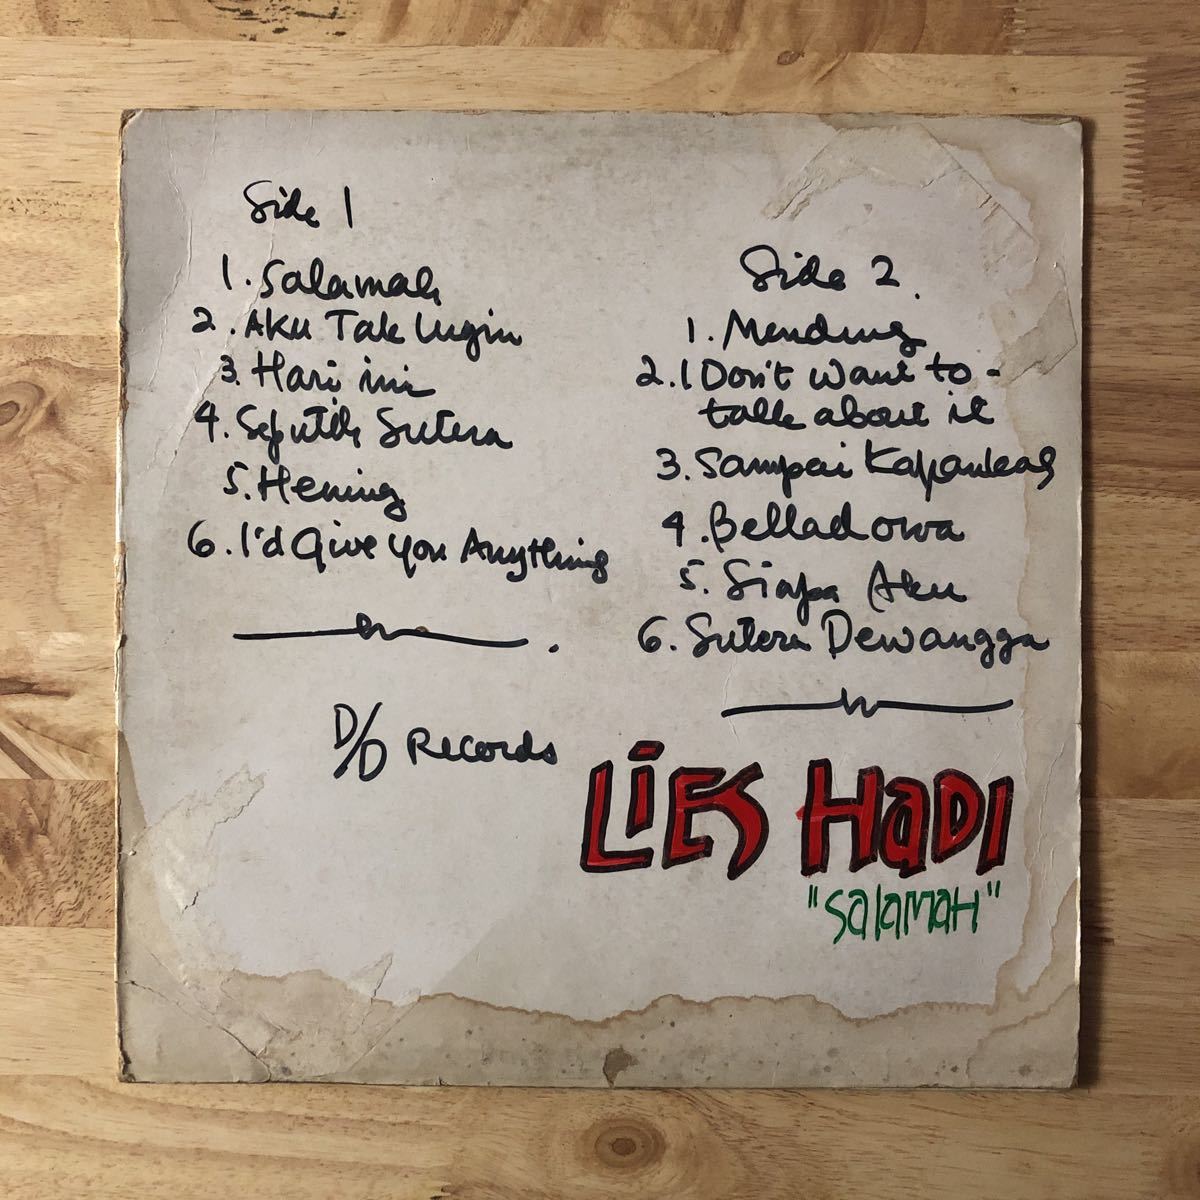 Side 1
1. Salamah
2. Aku Tak Ingin
3. Hari ini
4. Seputih Sutera
5. Hening
6. I'd Give You Anything
D/D Records
Side 2.
1. Mendung
2. I Don't want to -
talk about it
3. Sampai Kapankah
4. Belladova
5. Siapa Aku
6. Sutera Dewangga
LiES HaDI
"SalaMaH"